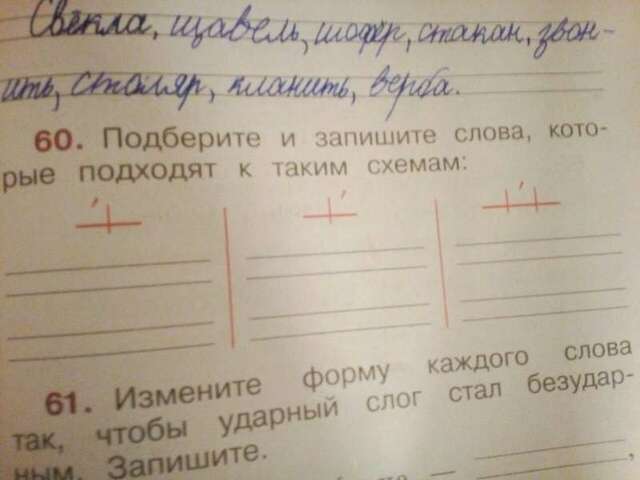 Свёкла, щавель, шофёр, стакан, звон-
ить, столяр, кланить, верба.
60. Подберите и запишите слова, кото-
рые подходят к таким схемам:
61. Измените форму каждого слова
так, чтобы ударный слог стал безудар-
ным. Запишите.